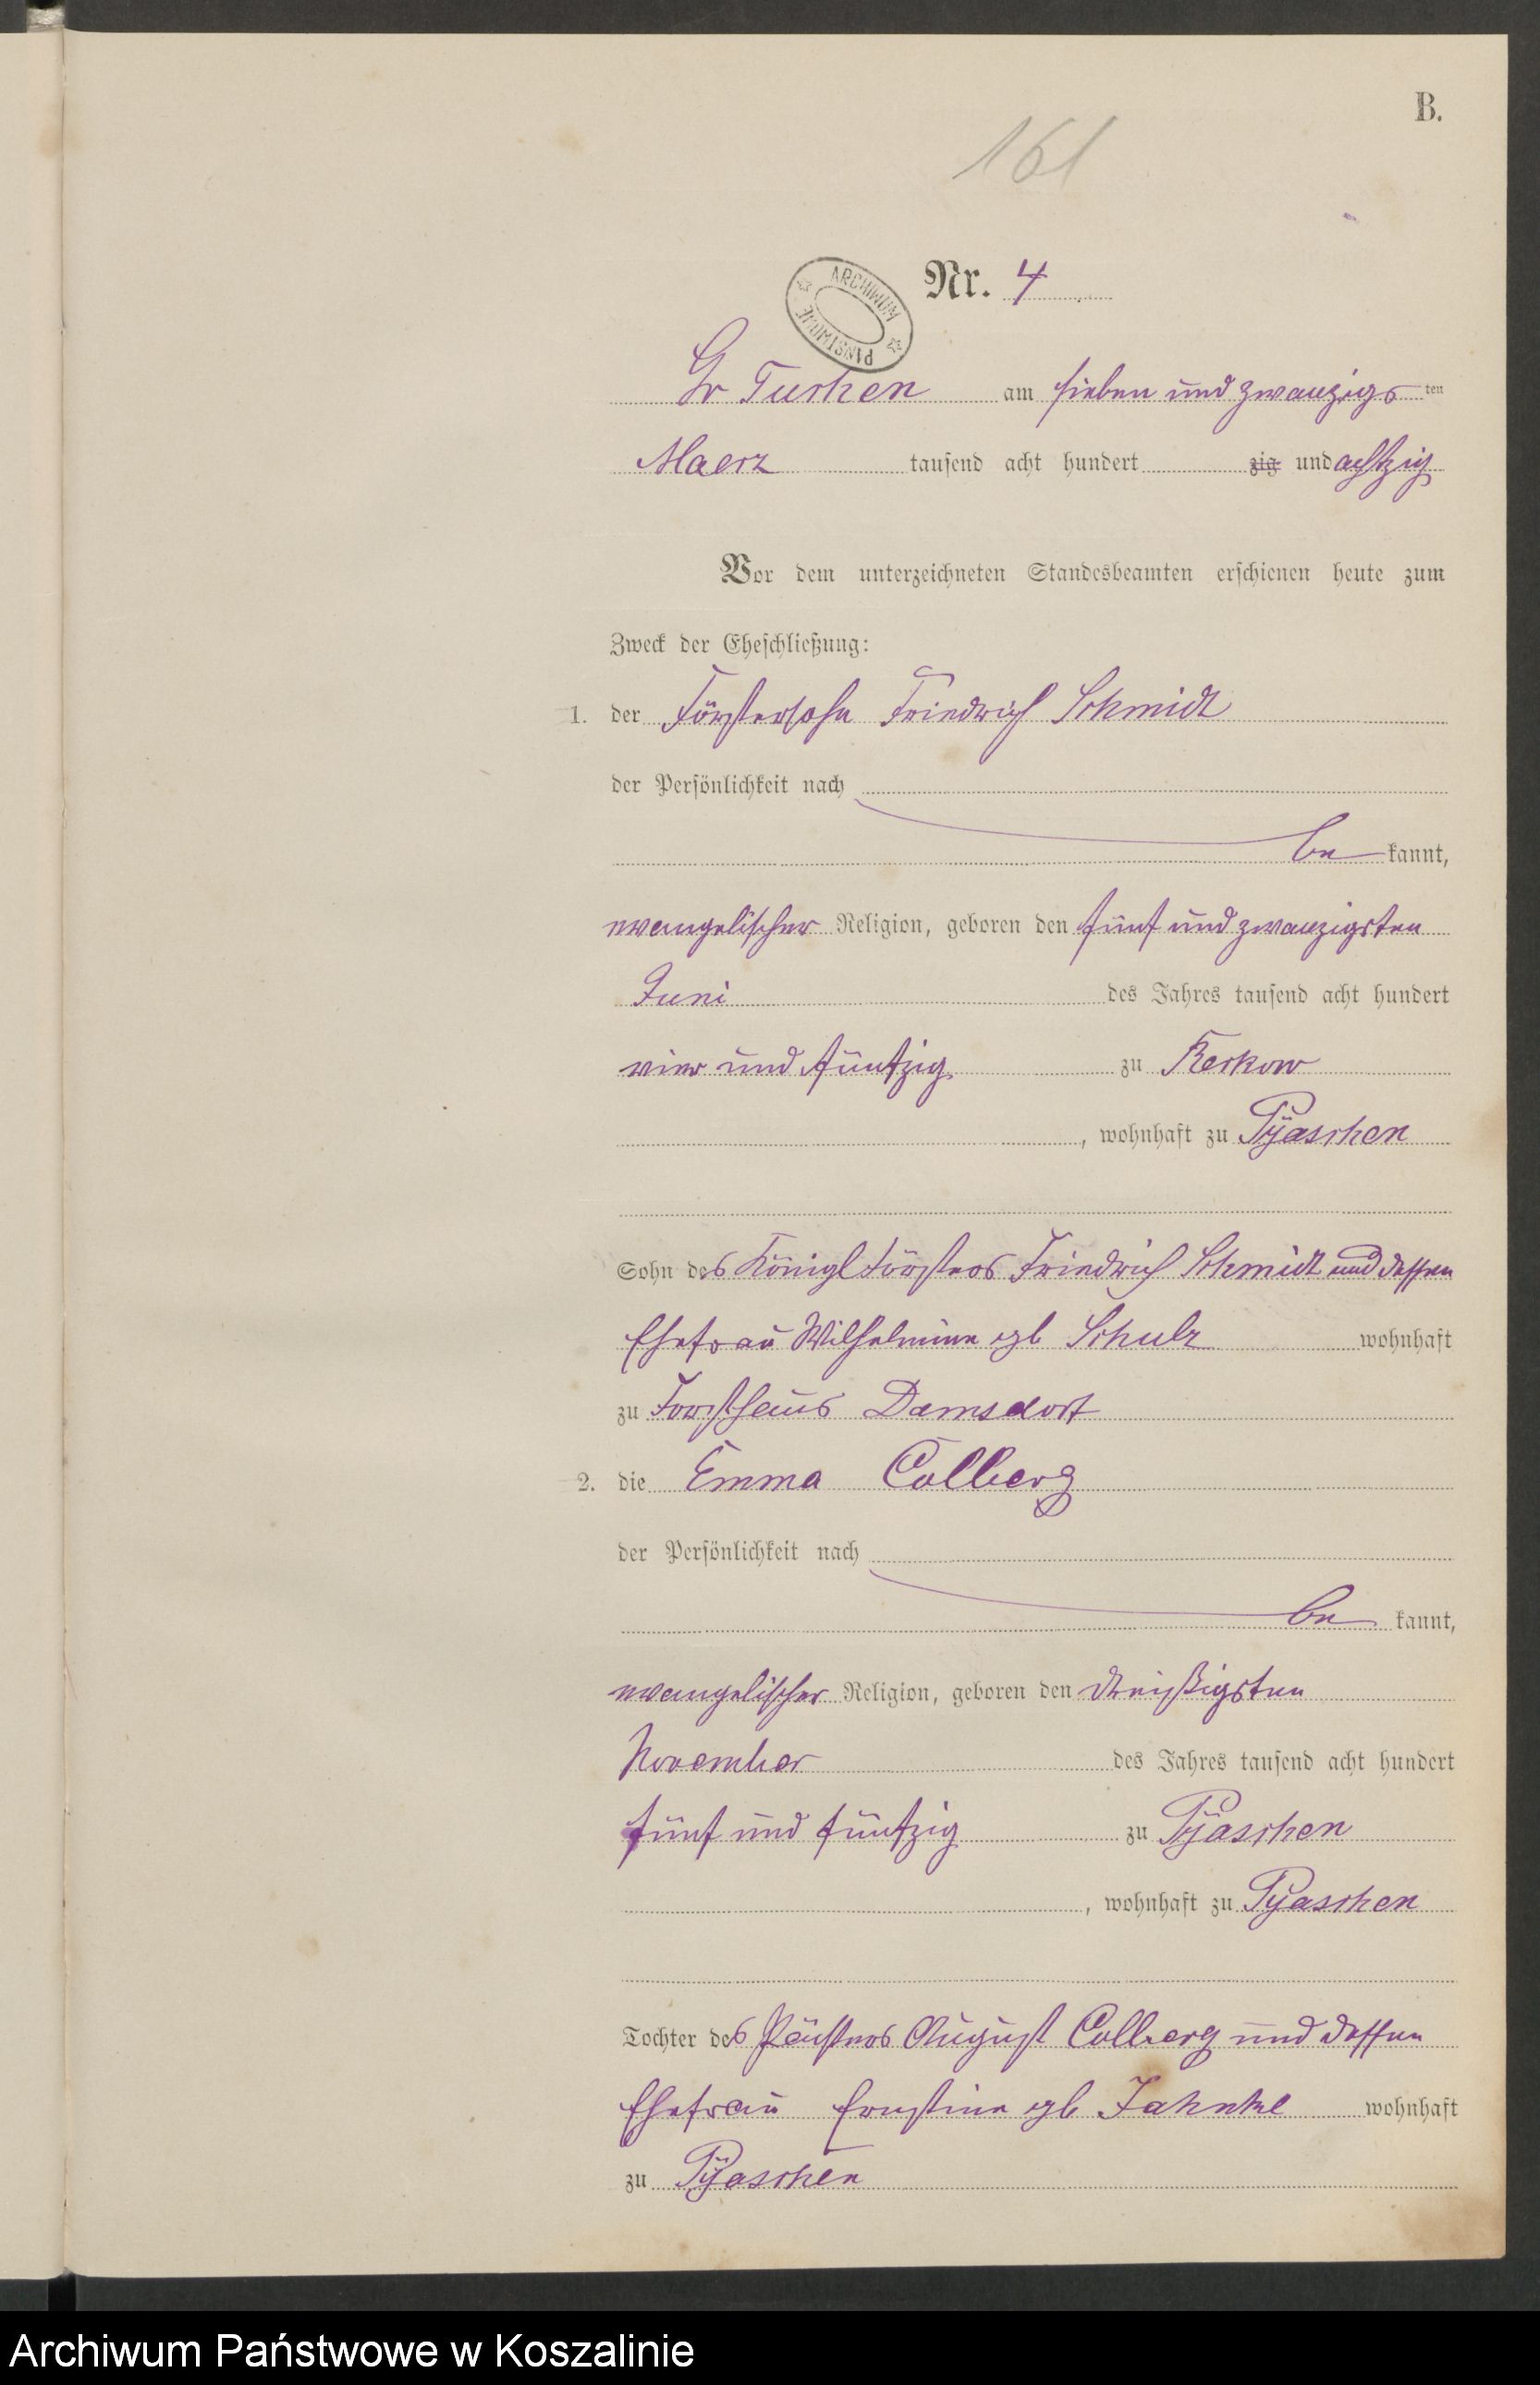 B.
161
ARCHIWUM PAŃSTWOWE
Nr. 4
Gr Tuchen am sieben und zwanzigsten
Maerz tausend acht hundert zig und achtzig
Vor dem unterzeichneten Standesbeamten erschienen heute zum
Zweck der Eheschließung:
1. der Förstersohn Friedrich Schmidt
der Persönlichkeit nach
be kannt,
evangelischer Religion, geboren den fünf und zwanzigsten
Juni des Jahres tausend acht hundert
vier und fünfzig zu Kerkow
, wohnhaft zu Pyaschen
Sohn des Königl Försters Friedrich Schmidt und dessen
Ehefrau Wilhelmine gb Schulz wohnhaft
zu Forsthaus Damsdorf
2. die Emma Collberg
der Persönlichkeit nach
be kannt,
evangelischer Religion, geboren den dreißigsten
November des Jahres tausend acht hundert
fünf und fünfzig zu Pyaschen
, wohnhaft zu Pyaschen
Tochter des August Collberg und dessen
Ehefrau Ernstine gb Jahnke wohnhaft
zu Pyaschen
Archiwum Państwowe w Koszalinie